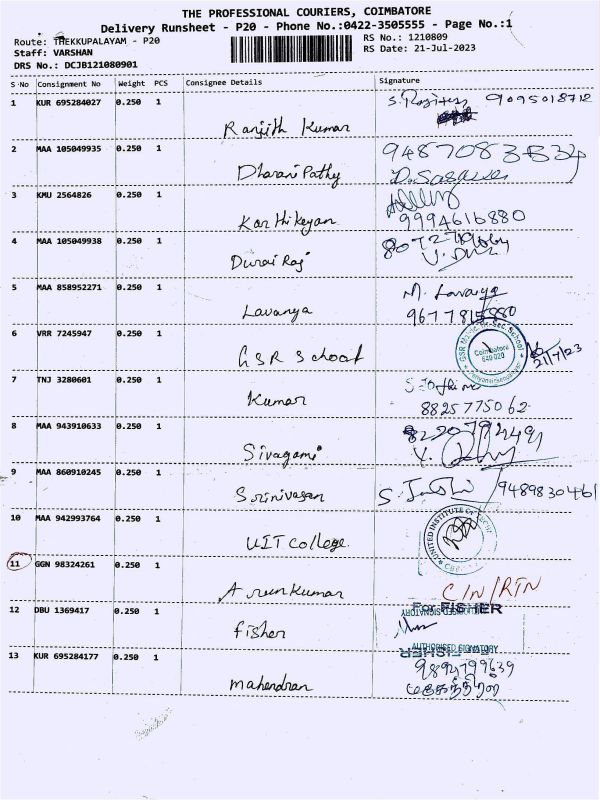 THE PROFESSIONAL COURIERS, COIMBATORE
Delivery Runsheet - P20 - Phone No.:0422-3505555 - Page No.:1
Route: THEKKUPALAYAM - P20
RS No.: 1210809
Staff: VARSHAN
RS Date: 21-Jul-2023
DRS No.: DCJB121080901
S·No Consignment No Weight PCS Consignee Details Signature
1 KUR 695284027 0.250 1 Ranjith Kumar 9095018712
2 MAA 105049935 0.250 1 DharaniPathy
3 KMU 2564826 0.250 1 Karthikeyan 9994616880
4 MAA 105049938 0.250 1 Durai Raj
5 MAA 858952271 0.250 1 Lavanya M. Lavanya
6 VRR 7245947 0.250 1 GSR School
Coimbatore
21/7/23
7 TNJ 3280601 0.250 1 Kumar
8825775062
8 MAA 943910633 0.250 1 Sivagami
9 MAA 860910245 0.250 1 Srinivasan
10 MAA 942993764 0.250 1 UIT College
UNITED INSTITUTE OF
11 GGN 98324261 0.250 1 Arunkumar C/N/RTN
12 DBU 1369417 0.250 1 fisher For FISHER
AUTHORISED SIGNATORY
13 KUR 695284177 0.250 1 mahendran
மகேந்திரன்